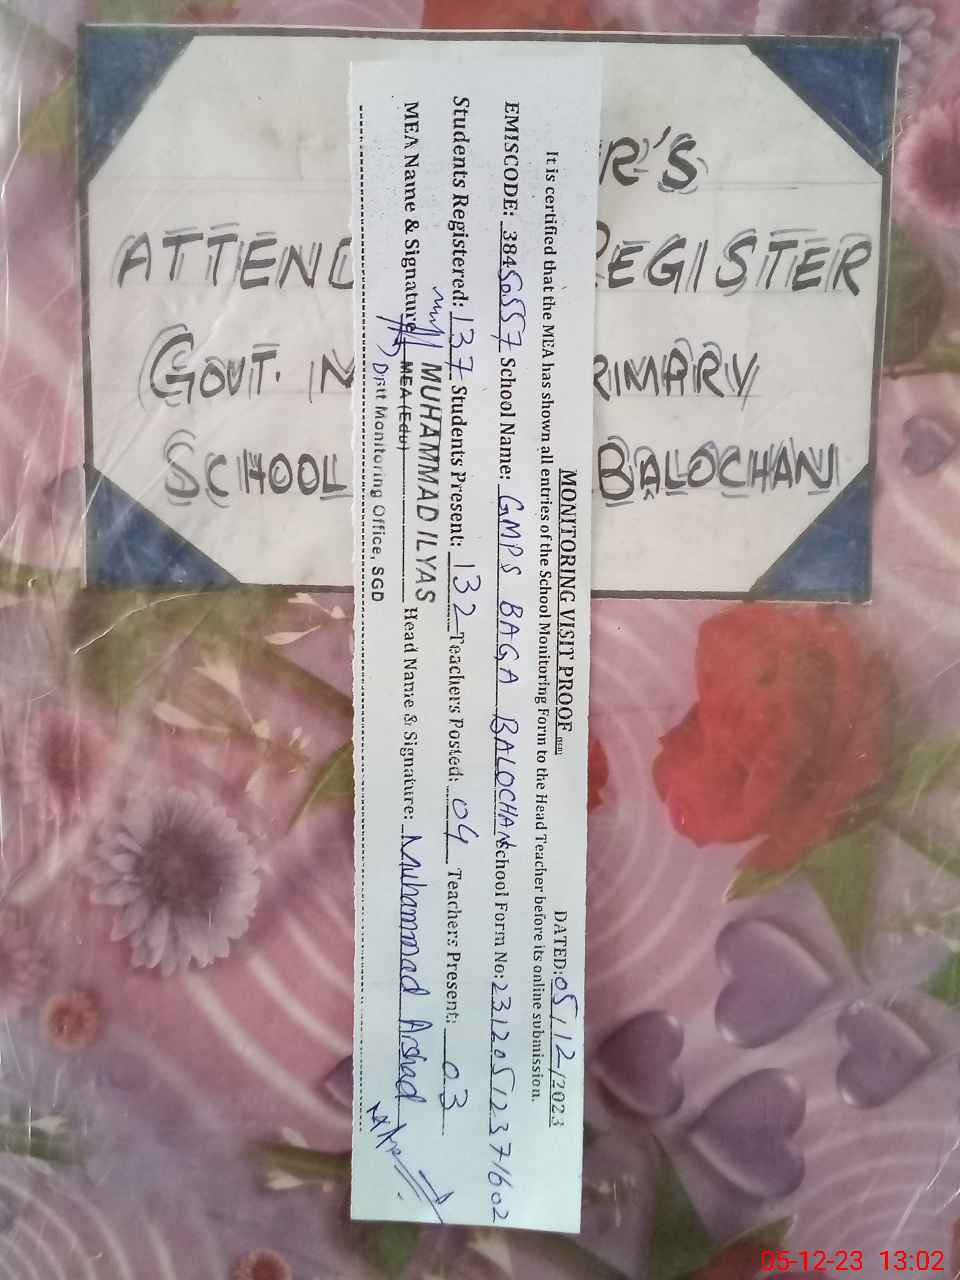 R'S
ATTEND REGISTER
GOVT. IMARY
SCHOOL BALOCHAN
MONITORING VISIT PROOF
DATED: 05/12/2023
It is certified that the MEA has shown all entries of the School Monitoring Form to the Head Teacher before its online submission.
EMISCODE: 38450557 School Name: GMPS BAGA BALOCHAN School Form No: 23120512371602
Students Registered: 137 Students Present: 132 Teachers Posted: 04 Teachers Present: 03
MUHAMMAD ILYAS
MEA Name & Signature MEA (Edu) Head Name & Signature: Muhammad Arshad
Distt Monitoring Office, SGD
05-12-23 13:02